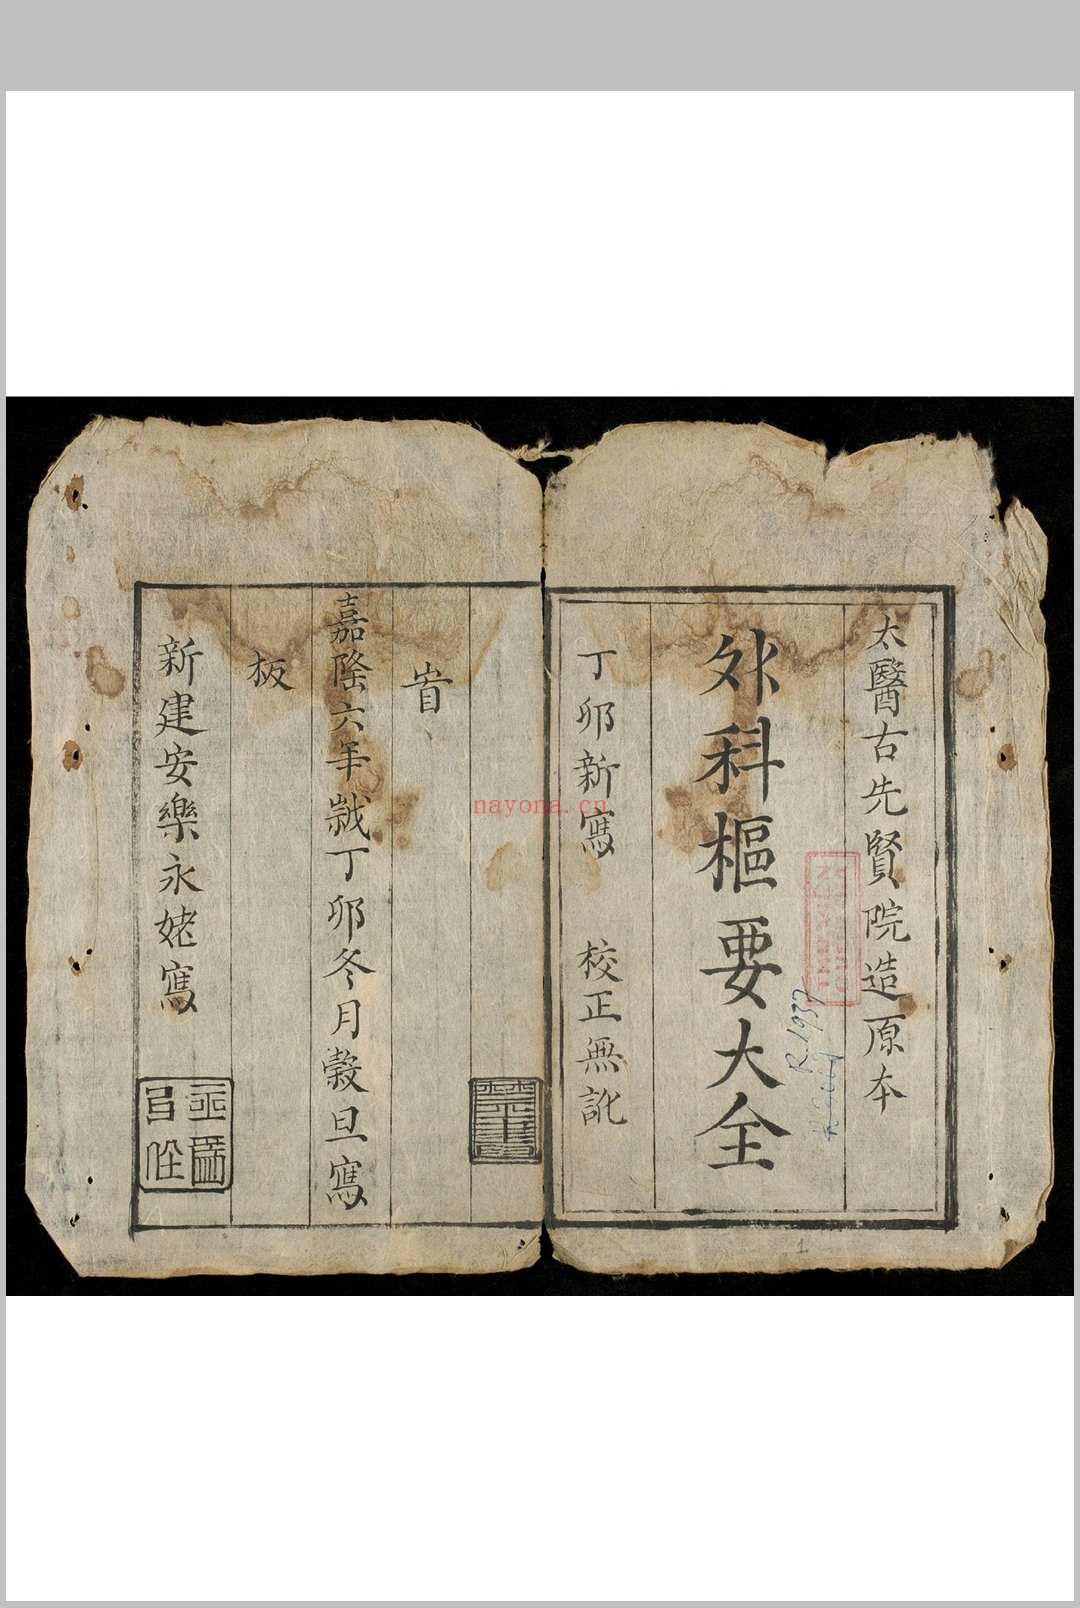 太醫古先賢院造原本
外科樞要大全
丁卯新寫 校正無訛
嘉隆六年歲丁卯冬月穀旦寫
板
新建安樂永姥寫
R.1937
1
nayona.cn